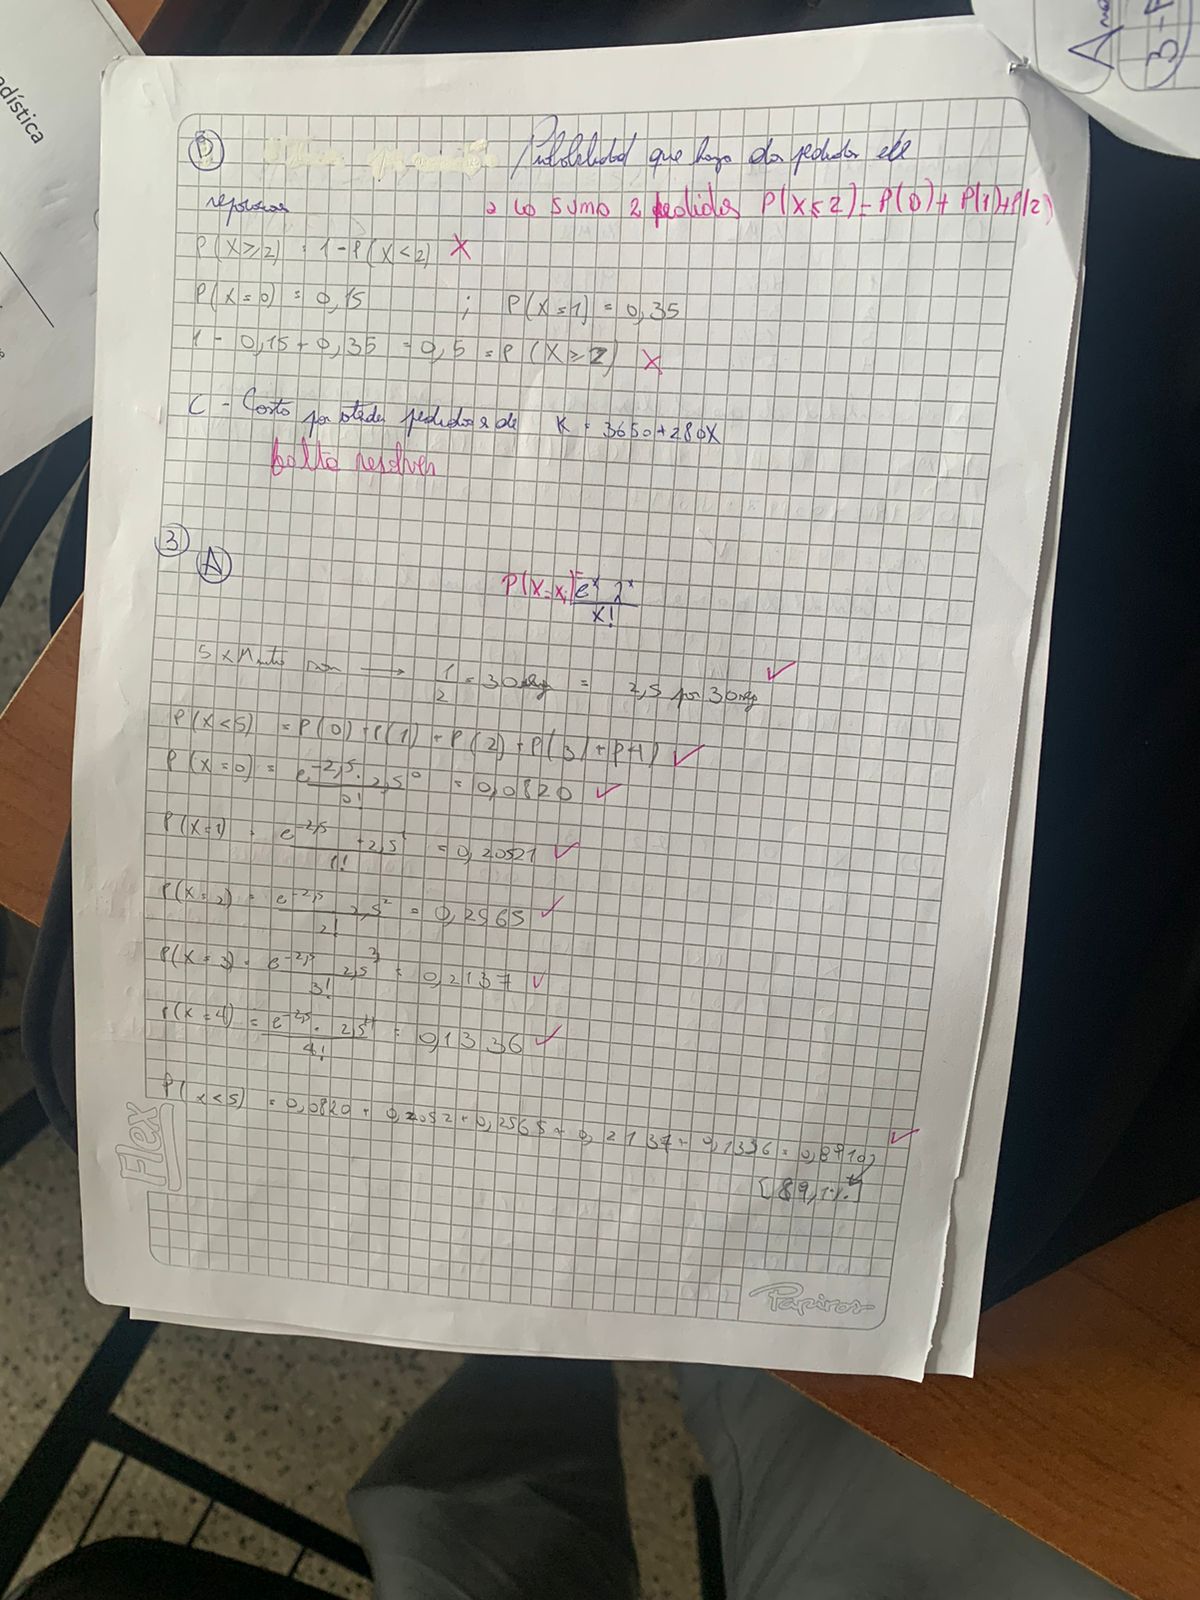 adística
B Probabilidad que haya dos pedidos de
reposicion a lo sumo 2 pedidos P(X≤2) = P(0) + P(1) + P(2)
P(X≥2) = 1 - P(X<2) X
P(X=0) = 0,15 ; P(X=1) = 0,35
1 - 0,15 + 0,35 = 0,5 = P(X≥2) X
C - Costo por pedidos de K = 3650 + 280X
falta resolver
3 A
P(X=xi) = e^x 2^x / x!
5 x → 1/2 = 30 = 2,5 por 30 ✓
P(X<5) = P(0) + P(1) + P(2) + P(3) + P4) ✓
P(X=0) = e^-2,5 . 2,5^0 / 0! = 0,0820 ✓
P(X=1) = e^-2,5 . 2,5^1 / 1! = 0,20521 ✓
P(X=2) = e^-2,5 2,5^2 / 2! = 0,2565 ✓
P(X=3) = e^-2,5 2,5^3 / 3! = 0,2137 ✓
P(X=4) = e^-2,5 . 2,5^4 / 4! = 0,1336 ✓
P(x<5) = 0,0820 + 0,2052 + 0,2565 + 0,2137 + 0,1336 = 0,8910 ✓
[89,1%]
Flex
Papiros